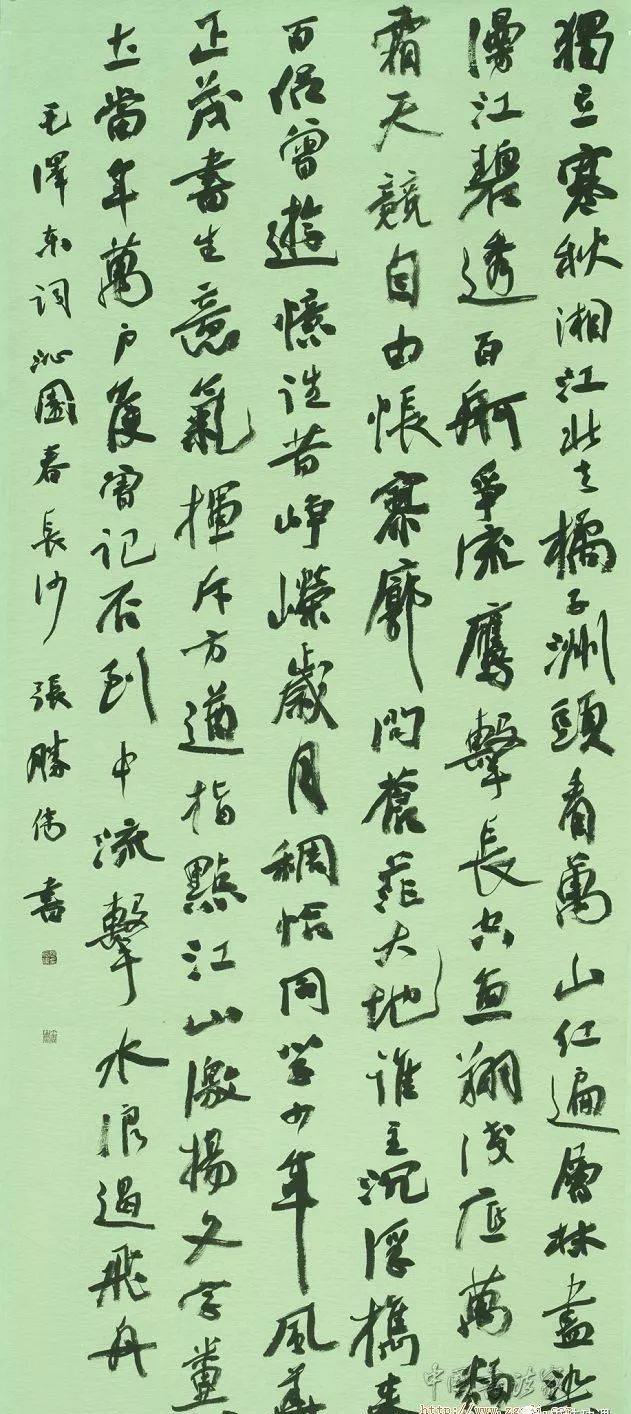 獨立寒秋湘江北去橘子洲頭看萬山红遍層林盡染
漫江碧透百舸爭流鷹擊長空魚翔淺底萬類
霜天競自由悵寥廓問蒼茫大地誰主沉浮攜來
百侶曾遊憶往昔崢嶸歲月稠恰同學少年風華
正茂書生意氣揮斥方遒指點江山激揚文字糞
土當年萬户侯曾記否到中流擊水浪遏飛舟
毛澤東詞沁園春長沙 張勝偉書